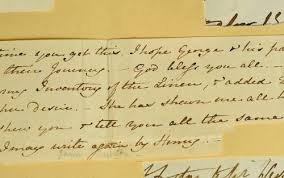 time you get this, I hope George & his pa
their Journey. — God bless you all. —
my Inventory of the Linen, & added
her desire. — She has shewn me all
shew you & tell you all the same
I may write again by Henry. —